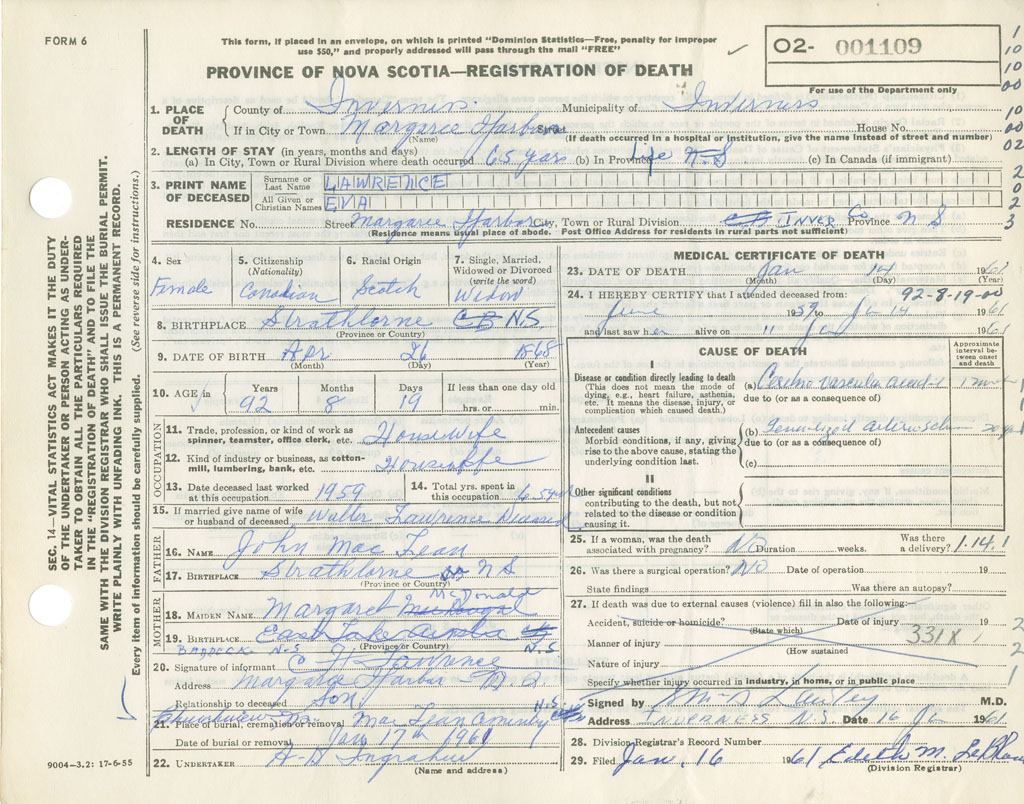 FORM 6
This form, if placed in an envelope, on which is printed "Dominion Statistics—Free, penalty for improper
use $50," and properly addressed will pass through the mail "FREE"
O2- 001109
For use of the Department only
PROVINCE OF NOVA SCOTIA—REGISTRATION OF DEATH
1. PLACE OF DEATH
County of Inverness Municipality of Inverness
If in City or Town Margaree Harbour Street House No.
(Name) (If death occurred in a hospital or institution, give the name instead of street and number)
2. LENGTH OF STAY (in years, months and days)
(a) In City, Town or Rural Division where death occurred 65 years (b) In Province Life N.S (c) In Canada (if immigrant)
3. PRINT NAME OF DECEASED
Surname or Last Name LAWRENCE
All Given or Christian Names EVA
RESIDENCE No. Street Margaree Harbour City, Town or Rural Division INVER Co Province N S
(Residence means usual place of abode. Post Office Address for residents in rural parts not sufficient)
4. Sex Female
5. Citizenship (Nationality) Canadian
6. Racial Origin Scotch
7. Single, Married, Widowed or Divorced (write the word) Widow
8. BIRTHPLACE Strathlorne CB N.S
(Province or Country)
9. DATE OF BIRTH Apr 26 1868
(Month) (Day) (Year)
10. AGE in Years 92 Months 8 Days 19 If less than one day old hrs. or min.
OCCUPATION
11. Trade, profession, or kind of work as spinner, teamster, office clerk, etc. Housewife
12. Kind of industry or business, as cotton-mill, lumbering, bank, etc. Housewife
13. Date deceased last worked at this occupation 1959
14. Total yrs. spent in this occupation 65 years
15. If married give name of wife or husband of deceased Walter Lawrence Deceased
FATHER
16. NAME John MacLean
17. BIRTHPLACE Strathlorne NS
(Province or Country)
MOTHER
18. MAIDEN NAME Margaret McDonald
19. BIRTHPLACE East Lake Ainslie
BADDECK N.S (Province or Country) N.S
20. Signature of informant C H Lawrence
Address Margaree Harbor N.S.
Relationship to deceased Son
21. Place of burial, cremation or removal MacLean Cemetery N.S.
Date of burial or removal Jan 17th 1961
22. UNDERTAKER A-D Ingraham
(Name and address)
MEDICAL CERTIFICATE OF DEATH
23. DATE OF DEATH Jan 14 1961
(Month) (Day) (Year)
24. I HEREBY CERTIFY that I attended deceased from: 92-8-19-00
June 1939 to Ja 14 1961
and last saw her alive on " Ja 1961
CAUSE OF DEATH
Approximate interval between onset and death
I
Disease or condition directly leading to death
(This does not mean the mode of dying, e.g., heart failure, asthenia, etc. It means the disease, injury, or complication which caused death.)
(a) Cerebro vascular accident
due to (or as a consequence of)
Antecedent causes
Morbid conditions, if any, giving rise to the above cause, stating the underlying condition last.
(b) Generalized arteriosclerosis
due to (or as a consequence of)
(c)
II
Other significant conditions
contributing to the death, but not related to the disease or condition causing it.
25. If a woman, was the death associated with pregnancy? NO Duration weeks. Was there a delivery? 1.14.1
26. Was there a surgical operation? NO Date of operation 19
State findings Was there an autopsy?
27. If death was due to external causes (violence) fill in also the following:
Accident, suicide or homicide? Date of injury 19
(State which)
Manner of injury 331X
(How sustained)
Nature of injury
Specify whether injury occurred in industry, in home, or in public place
Signed by M.D.
Address INVERNESS N.S. Date 16 Ja 1961
28. Division Registrar's Record Number
29. Filed Jan. 16 1961 Edith M. LeBlanc
(Division Registrar)
SEC. 14—VITAL STATISTICS ACT MAKES IT THE DUTY
OF THE UNDERTAKER OR PERSON ACTING AS UNDER-
TAKER TO OBTAIN ALL THE PARTICULARS REQUIRED
IN THE "REGISTRATION OF DEATH" AND TO FILE THE
SAME WITH THE DIVISION REGISTRAR WHO SHALL ISSUE THE BURIAL PERMIT.
WRITE PLAINLY WITH UNFADING INK. THIS IS A PERMANENT RECORD.
Every item of information should be carefully supplied. (See reverse side for instructions.)
9004-3.2: 17-6-55